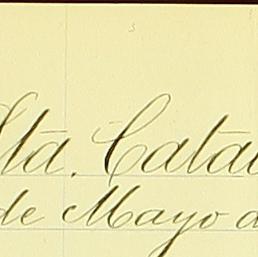 Sta. Catal
de Mayo d